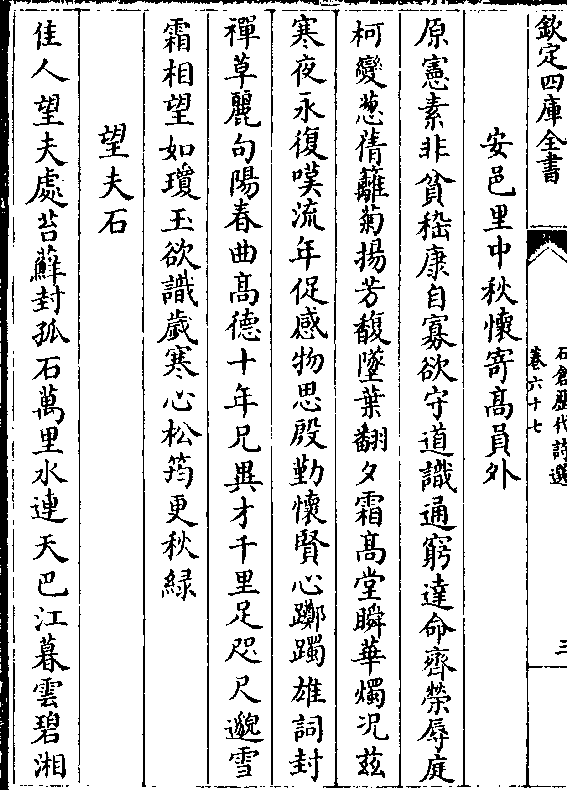 欽定四庫全書
石倉歷代詩選
卷六十七
三
安邑里中秋懷寄髙員外
原憲素非貧嵇康自寡欲守道識通窮達命齊榮辱庭
柯變葱蒨籬菊揚芳馥墜葉翻夕霜髙堂瞬華燭况兹
寒夜永復嘆流年促感物思殷勤懷賢心躑躅雄詞封
禪草麗句陽春曲髙德十年兄異才千里足咫尺邈雪
霜相望如瓊玉欲識歲寒心松筠更秋緑
望夫石
佳人望夫處苔蘚封孤石萬里水連天巴江暮雲碧湘